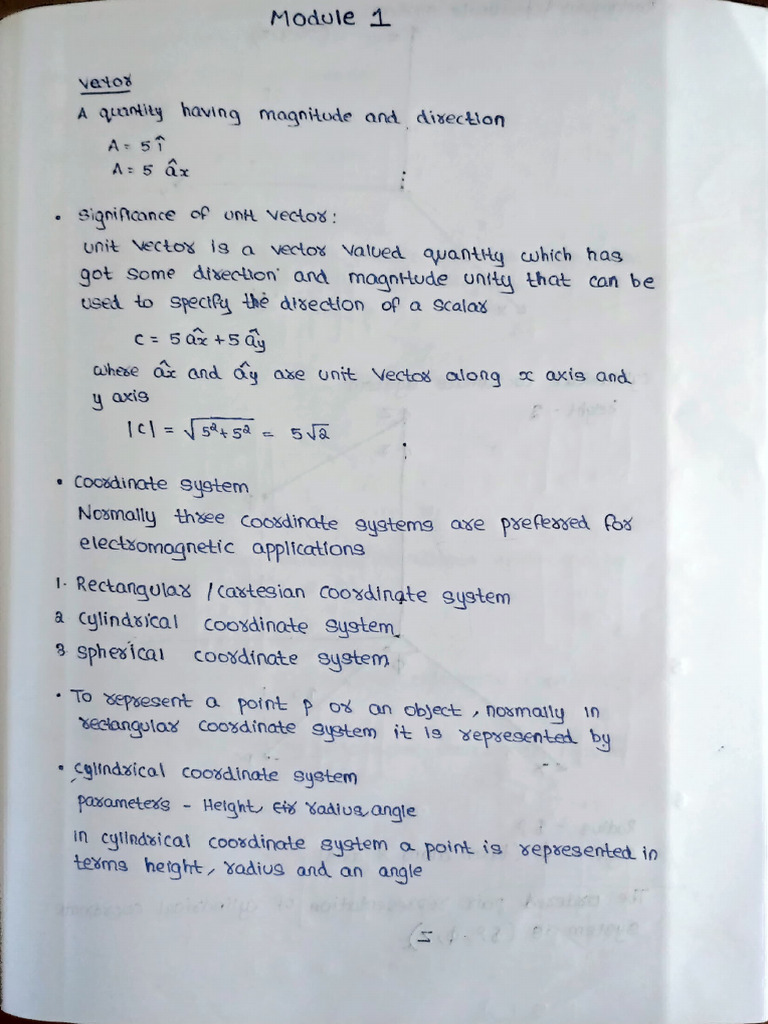 Module 1
Vector
A quantity having magnitude and direction
A = 5 î
A = 5 âx
• Significance of unit vector:
unit vector is a vector valued quantity which has
got some direction and magnitude unity that can be
used to specify the direction of a scalar
C = 5 âx + 5 ây
where âx and ây are unit vector along x axis and
y axis
|C| = √5²+5² = 5√2
• Coordinate system
Normally three coordinate systems are preferred for
electromagnetic applications
1. Rectangular / cartesian coordinate system
2 cylindrical coordinate system
3 spherical coordinate system
• To represent a point p or an object, normally in
rectangular coordinate system it is represented by
• cylindrical coordinate system
parameters - Height, radius, angle
in cylindrical coordinate system a point is represented in
terms height, radius and an angle